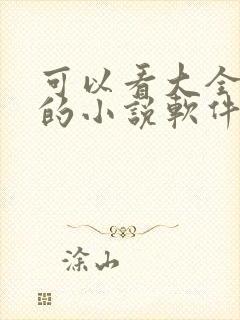 可以看大全
的小說軟件
涂山